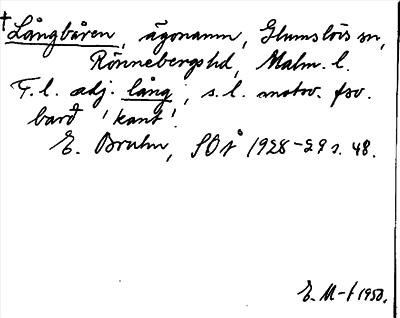 †Långbåren, ägonamn, Glumslövs sn,
Rönnebergs hd, Malm. l.
F. l. adj. lång, s. l. motsv. fsv.
barð 'kant'.
E. Bruhn, SOÅ 1928-29 s. 48.
E. M-t 1950.